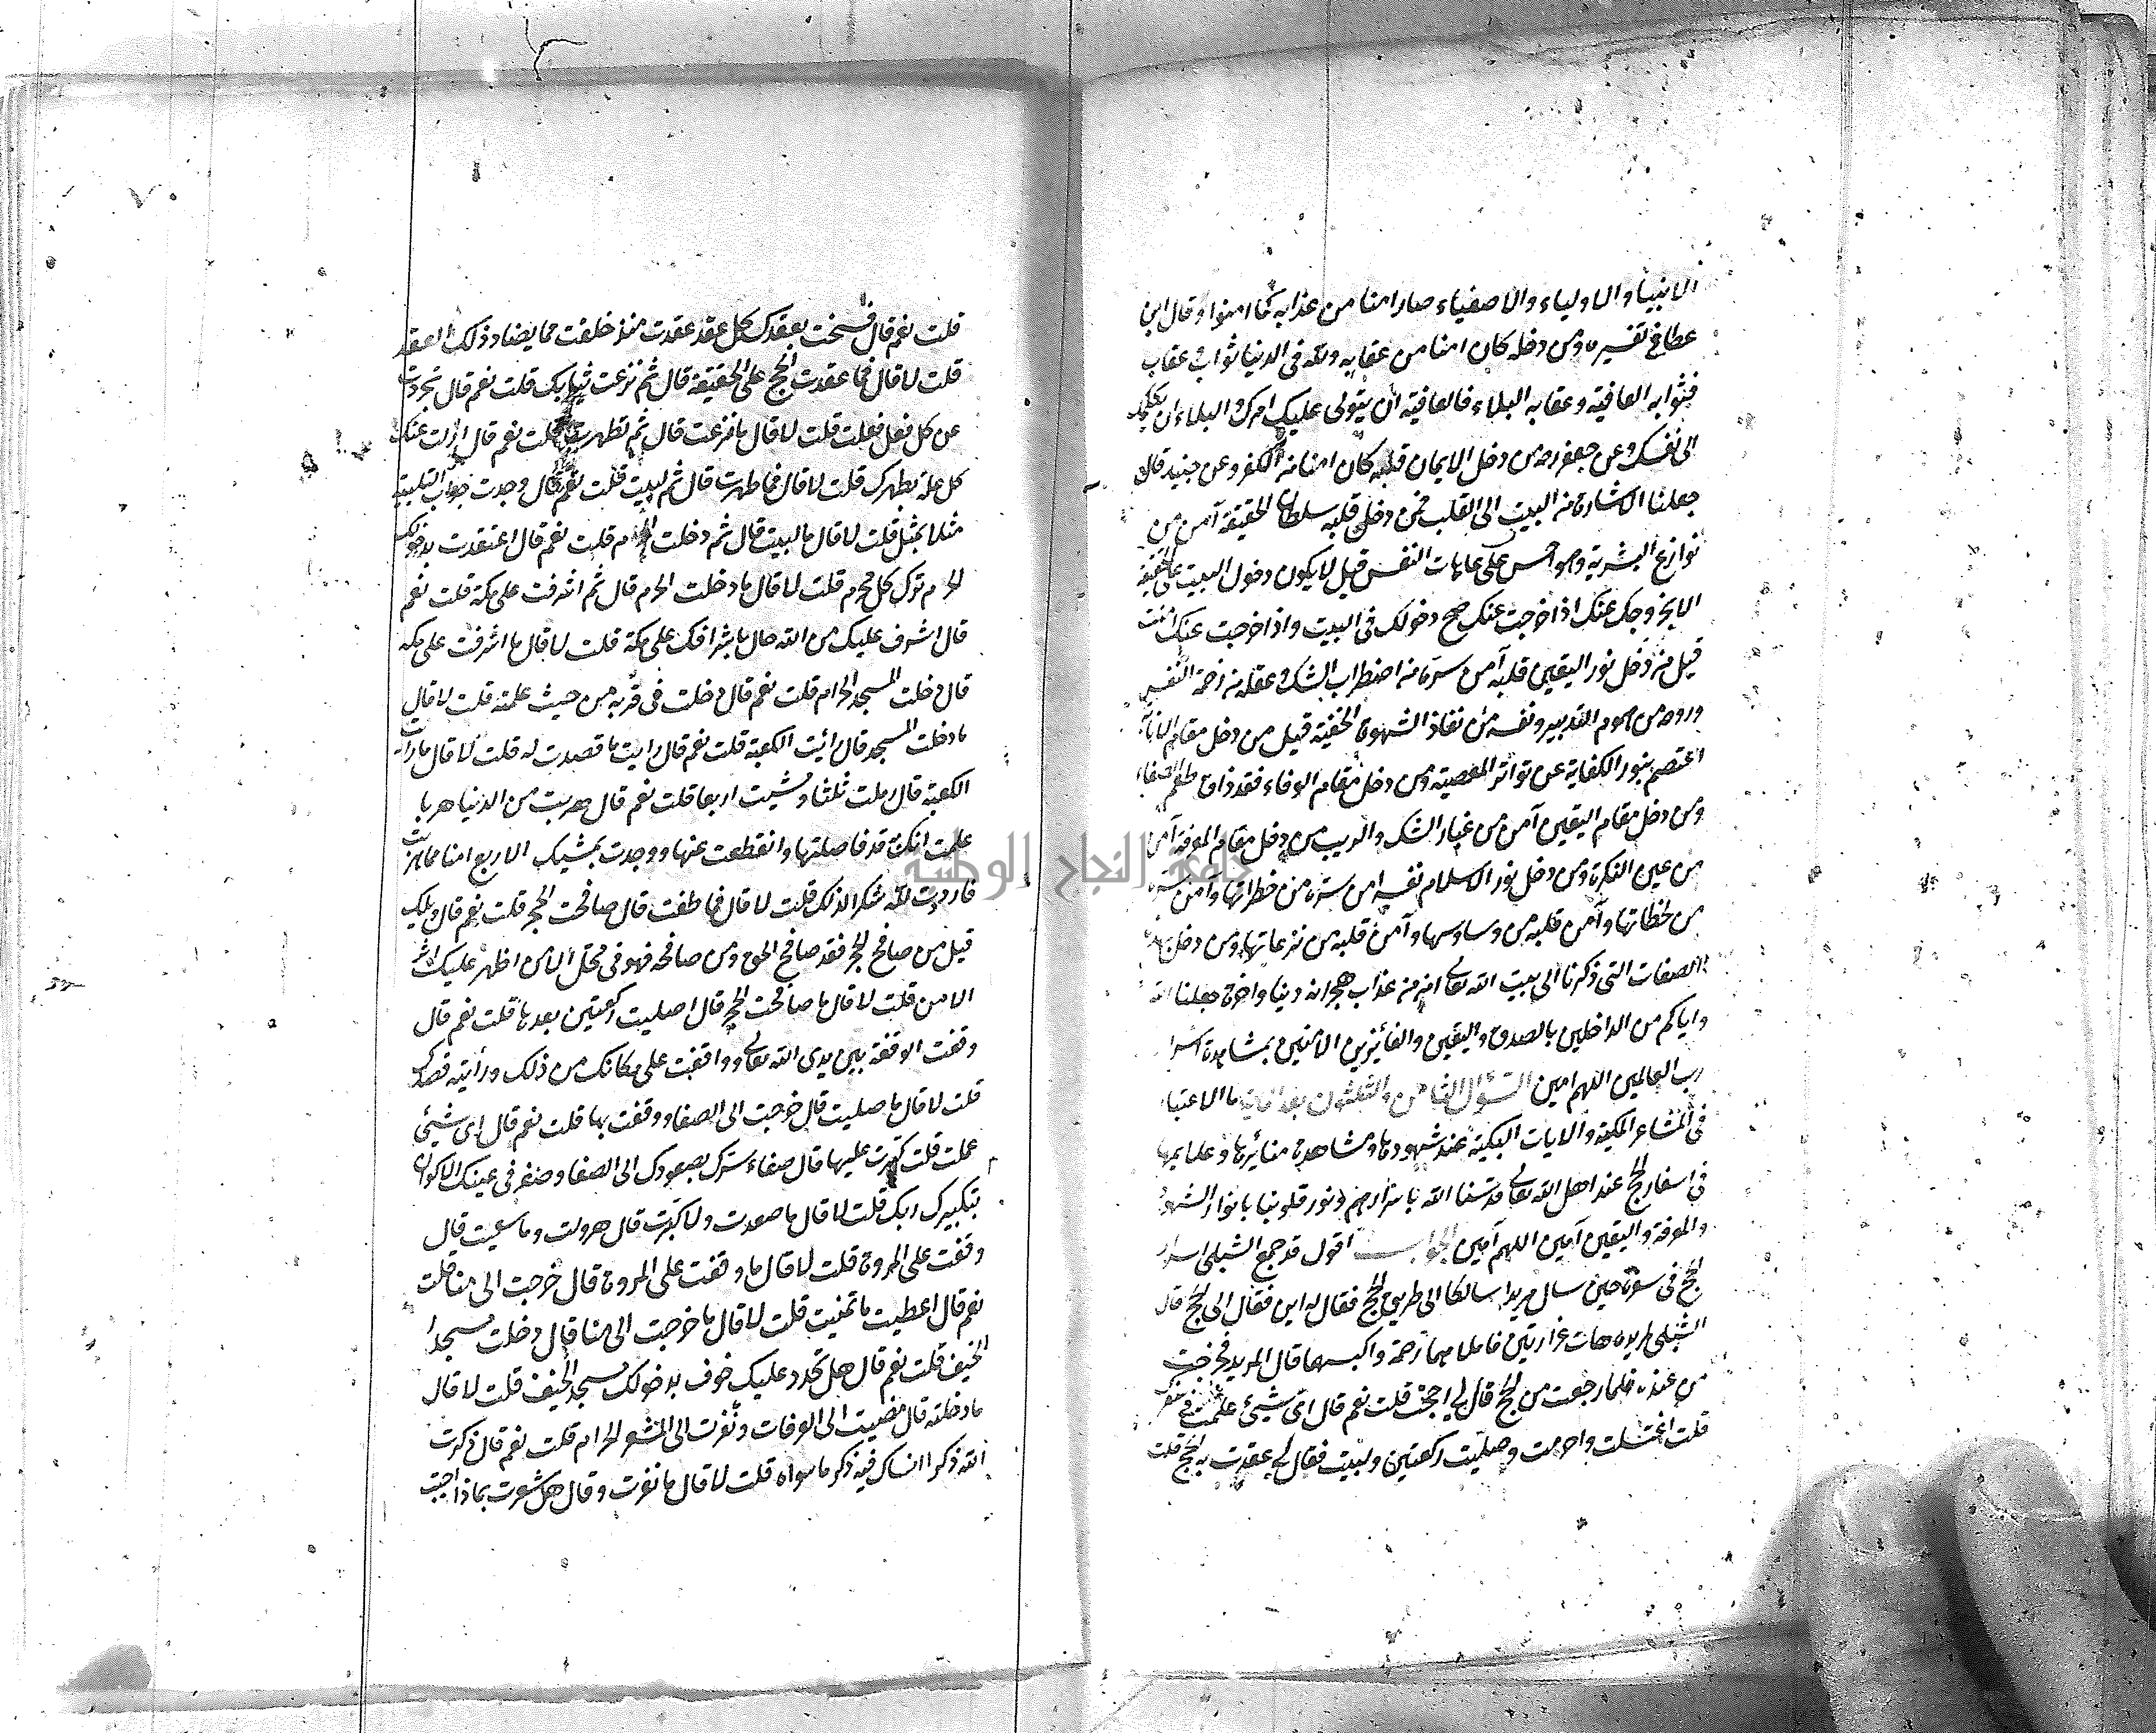 الانبيا والاولياء والاصفياء صار امنا من عذابه كما امنوا وقال ابن
عطا في تفسيره ومن دخله كان امنا من عقابه ولله فى الدنيا ثواب وعقاب
فثوابه العافية وعقابه البلاء فالعافية ان يتولى عليك امرك والبلاء ان يكلك
الى نفسك وعن جعفر رحه من دخل الايمان قلبه كان امنا من الكفر وعن جنيد قال
جعلنا الاشارة من البيت الى القلب فمن دخل قلبه سلطان الحقيقة آمن من
نوازع البشرية وهواجس على عاهات النفس قيل لا يكون دخول البيت على الحقيقة
الا بخروجك عنك اذا خرجت عنك صح دخولك فى البيت واذا خرجت عنك امنت
قيل من دخل نور اليقين قلبه آمن سره من اضطراب الشك وعقله من زحمة النفس
وروحه من هموم التدبير ونفسه من نفاذ الشهوة الخفية قيل من دخل مقام الانابة
اعتصم بنور الكفاية عن تواتر المعصية ومن دخل مقام الوفاء فقد ذاق طعم الصفاء
ومن دخل مقام اليقين آمن من غبار الشك والريب من دخل مقام المعرفة آمن
من عين النكرة ومن دخل نور الاسلام نفسه امن سره من خطراتها وآمن
من لحظاتها وآمن قلبه من وساوسها وآمن قلبه من نزعاتها ومن دخل بهذه
الصفات التى ذكرنا الى بيت الله تعالى امن من عذاب هجرانه دنيا واخرة جعلنا الله
واياكم من الداخلين بالصدق واليقين والفائزين الآمنين بمشاهدة اسرار
رب العالمين اللهم امين السؤال الثامن والثلثون بعد المائة ما الاعتبار
فى المشاعر المكية والايات البكية عند شهودها ومشاهدة منائرها وعلايمها
فى اسفار الحج عند اهل الله تعالى قدسنا الله باسرارهم ونور قلوبنا بانوار الشهود
والمعرفة واليقين آمين اللهم آمين الجواب اقول قد جمع الشبلى اسرار
الحج فى سفره حين سال مريدا سالكا الى طريق الحج فقال له اين فقال الى الحج قال
الشبلى لمريده هات غرارتين فاملاهما رحمة واكبسها قال المريد فخرجت
من عنده فلما رجعت من الحج قال لي احججت قلت نعم قال اى شيئ عملت في سفرك
قلت اغتسلت واحرمت وصليت ركعتين ولبيت فقال لي عقدت به الحج قلت
قلت نعم قال فسخت بعقدك كل عقد عقدت منذ خلقت مما يضاد ذلك العقد
قلت لا قال فما عقدت الحج على الحقيقة قال ثم نزعت ثيابك قلت نعم قال تجردت
عن كل فعل فعلت قلت لا قال ما نزعت قال ثم تطهرت قلت نعم قال ازلت عنك
كل علة بطهرك قلت لا قال فما طهرت قال ثم لبيت قلت نعم قال وجدت جواب التلبية
مثلا بمثل قلت لا قال ما لبيت قال ثم دخلت الحرم قلت نعم قال اعتقدت بدخولك
الحرم ترك كل محرم قلت لا قال ما دخلت الحرم قال ثم اشرفت على مكة قلت نعم
قال اشرف عليك من الله حال باشرافك على مكة قلت لا قال ما اشرفت على مكه
قال دخلت المسجد الحرام قلت نعم قال دخلت فى قربه من حيث علمته قلت لا قال
ما دخلت المسجد قال رائيت الكعبة قلت نعم قال رايت ما قصدت له قلت لا قال ما رايت
الكعبة قال رملت ثلثا ومشيت اربعا قلت نعم قال هربت من الدنيا هربا
علمت انك قد فاصلتها وانقطعت عنها ووجدت بمشيك الاربع امنا مما هربت
فازددت لله شكرا لذلك قلت لا قال فما طفت قال صافحت الحجر قلت نعم قال ويلك
قيل من صافح الحجر فقد صافح الحق ومن صافحه فهو فى محل الامن اظهر عليك اثر
الامن قلت لا قال ما صافحت الحجر قال اصليت ركعتين بعدها قلت نعم قال
وقفت الوقفة بين يدى الله تعالى وواقفت على مكانك من ذلك ورأيته قصدك
قلت لا قال ما صليت قال خرجت الى الصفا ووقفت بها قلت نعم قال اى شيئ
عملت قلت كبرت عليها قال صفاء سرك بصعودك الى الصفا وصغر فى عينك الاكوان
بتكبيرك ربك قلت لا قال ما صعدت ولا كبرت قال هرولت وما سعيت قال
وقفت على المروة قلت لا قال ما وقفت على المروة قال خرجت الى منا قلت
نعم قال اعطيت ما تمنيت قلت لا قال ما خرجت الى منا قال دخلت مسجد
الخيف قلت نعم قال هل تجدد عليك خوف بدخولك مسجد الخيف قلت لا قال
ما دخلته قال مضيت الى العرفات ونفرت الى المشعر الحرام قلت نعم قال ذكرت
الله ذكرا انساك فيه ذكر ما سواه قلت لا قال ما نفرت وقال هل شعرت بماذا اجبت
جامعة النجاح الوطنية